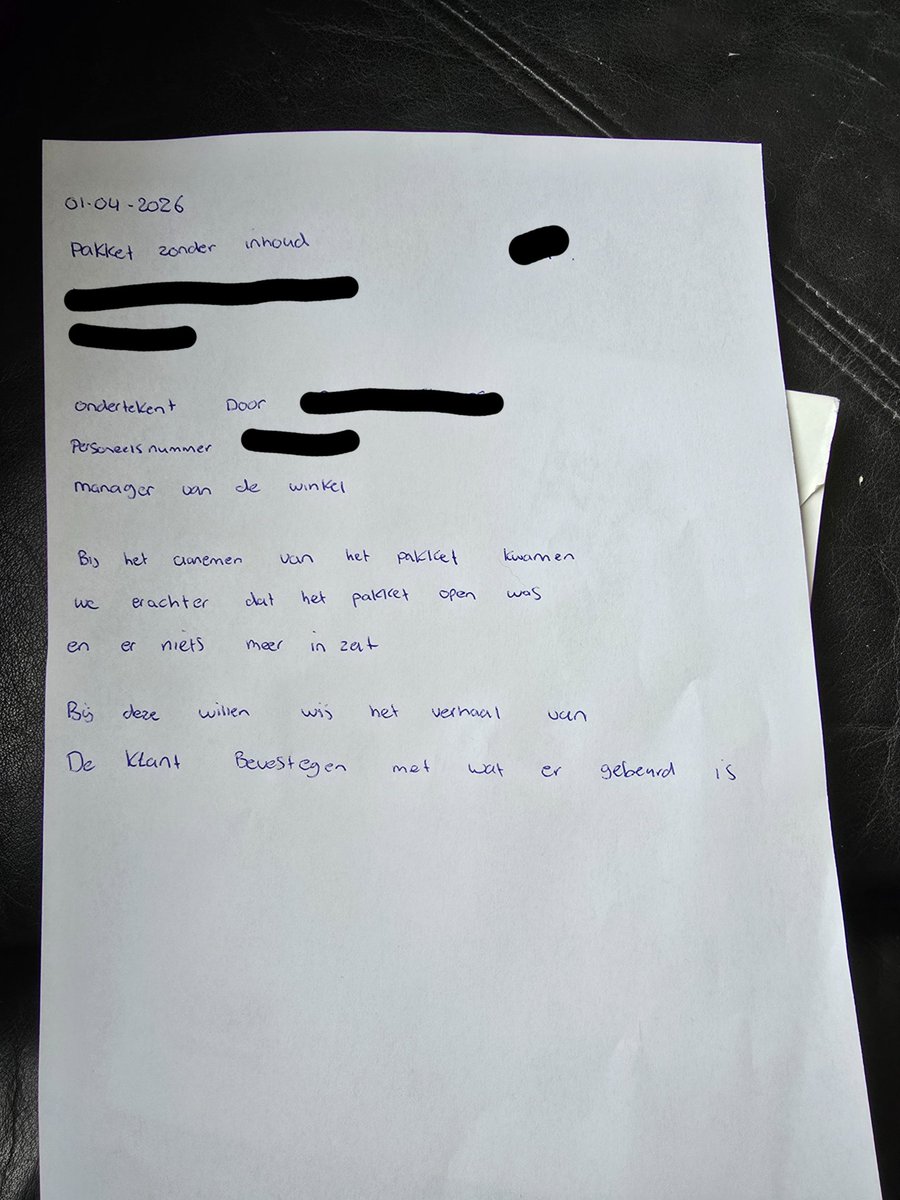 01-04-2026
Pakket zonder inhoud
ondertekent Door
Personeelsnummer
manager van de winkel
Bij het aannemen van het pakket kwamen
we erachter dat het pakket open was
en er niets meer in zat
Bij deze willen wij het verhaal van
De klant Bevestegen met wat er gebeurd is